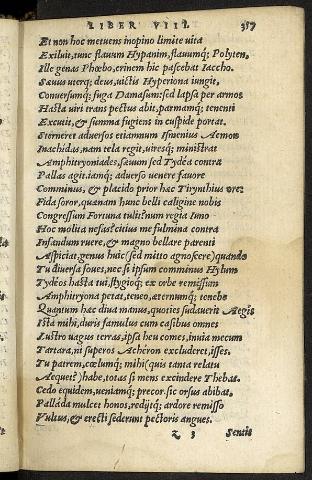 LIBER VIII. 357
Et non hoc metuens inopino limite uita
Exiluit, tunc flauum Hypanim, flauumq; Polyten,
Ille genas Phœbo, crinem hic pascebat Iaccho.
Sæuus uterq; deus, uictis Hyperiona iungit,
Conuersumq; fuga Damasum: sed lapsa per armos
Hasta uiri trans pectus abit, parmamq; tenenti
Excutit, & summa fugiens in cuspide portat.
Sterneret aduersos etiamnum Ismenius Acmon
Inachidas, nam tela regit, uiresq; ministrat
Amphitryoniades, sæuum sed Tydéa contra
Pallas agit. iamq; aduerso uenere fauore
Comminus, & placido prior hæc Tirynthius ore:
Fida soror, quænam hunc belli caligine nobis
Congressum Fortuna tulit? num regia Iuno
Hoc molita nefas? citius me fulmina contra
Infandum ruere, & magno bellare parenti
Aspiciat. genus huic (sed mitto agnoscere) quando
Tu diuersa foues, nec si ipsum comminus Hylum
Tydeos hasta tui, stygioq; ex orbe remissum
Amphitryona petat, teneo, æternumq; tenebo
Quantum hæc diua manus, quoties sudauerit Aegis
Ista mihi, duris famulus cum casibus omnes
Lustro uagus terras, ipsa heu comes, inuia mecum
Tartara, ni superos Acheron excluderet, isses.
Tu patrem, cœlumq; mihi (quis tanta relatu
Aequet?) habe, totas si mens excindere Thebas.
Cedo equidem, ueniamq; precor. sic orsus abibat.
Pallada mulcet honos, redijtq; ardore remisso
Vultus, & erecti sederunt pectoris angues.
Z 3 Sentit